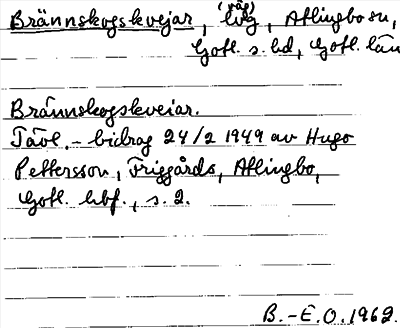 Brännskogskvejar, (väg) lvg, Atlingbo sn,
Gotl. s. hd, Gotl. län
Brännskogskveiar.
Tävl.-bidrag 24/2 1949 av Hugo
Pettersson, Friggårds, Atlingbo,
Gotl. hbf., s. 2.
B.-E.O. 1962.